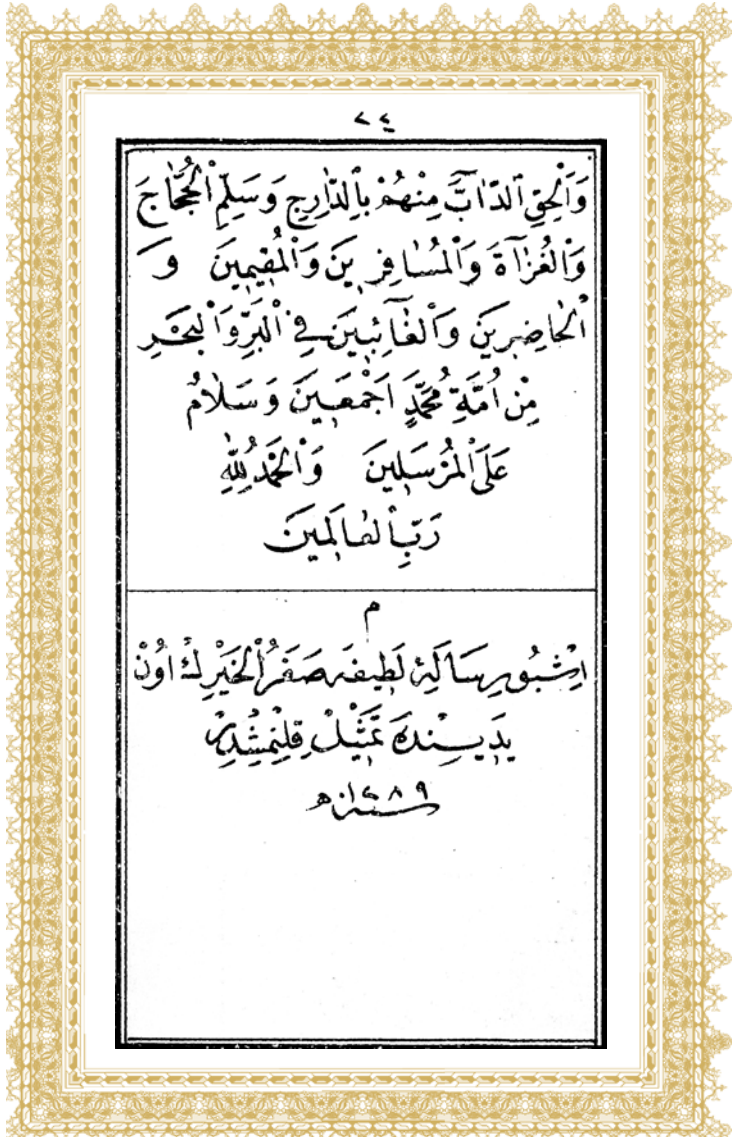 ٢٤
وَاَلْحِقِ الدَّابَّ مِنْهُمْ بِالدَّارِجِ وَسَلِّمِ الْحُجَّاجَ
وَالْغُزَاةَ وَالْمُسَافِرِينَ وَالْمُقِيمِينَ وَ
الْحَاضِرِينَ وَالْغَآئِبِينَ فِي الْبَرِّ وَالْبَحْرِ
مِنْ اُمَّةِ مُحَمَّدٍ اَجْمَعِينَ وَسَلَامٌ
عَلَى الْمُرْسَلِينَ وَالْحَمْدُ لِلّٰهِ
رَبِّ الْعَالَمِينَ
م
اِشْبُو رِسَالَهِٔ لَطِيفَه صَفَرُ الْخَيْرِكْ اوُنْ
يَدِيسِنْدَه تَمْثِيلْ قِلِنْمِشْدِرْ
سنه ١٢٨٩ هـ